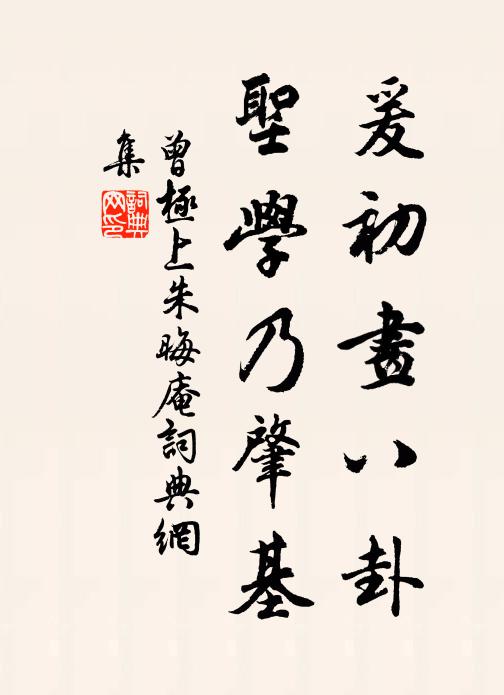 爰初畫八卦
聖學乃肇基
曾極上朱晦庵詞典網
集
詞典
网印